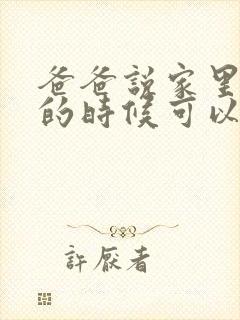 爸爸說家里
的時候可以
許厭者